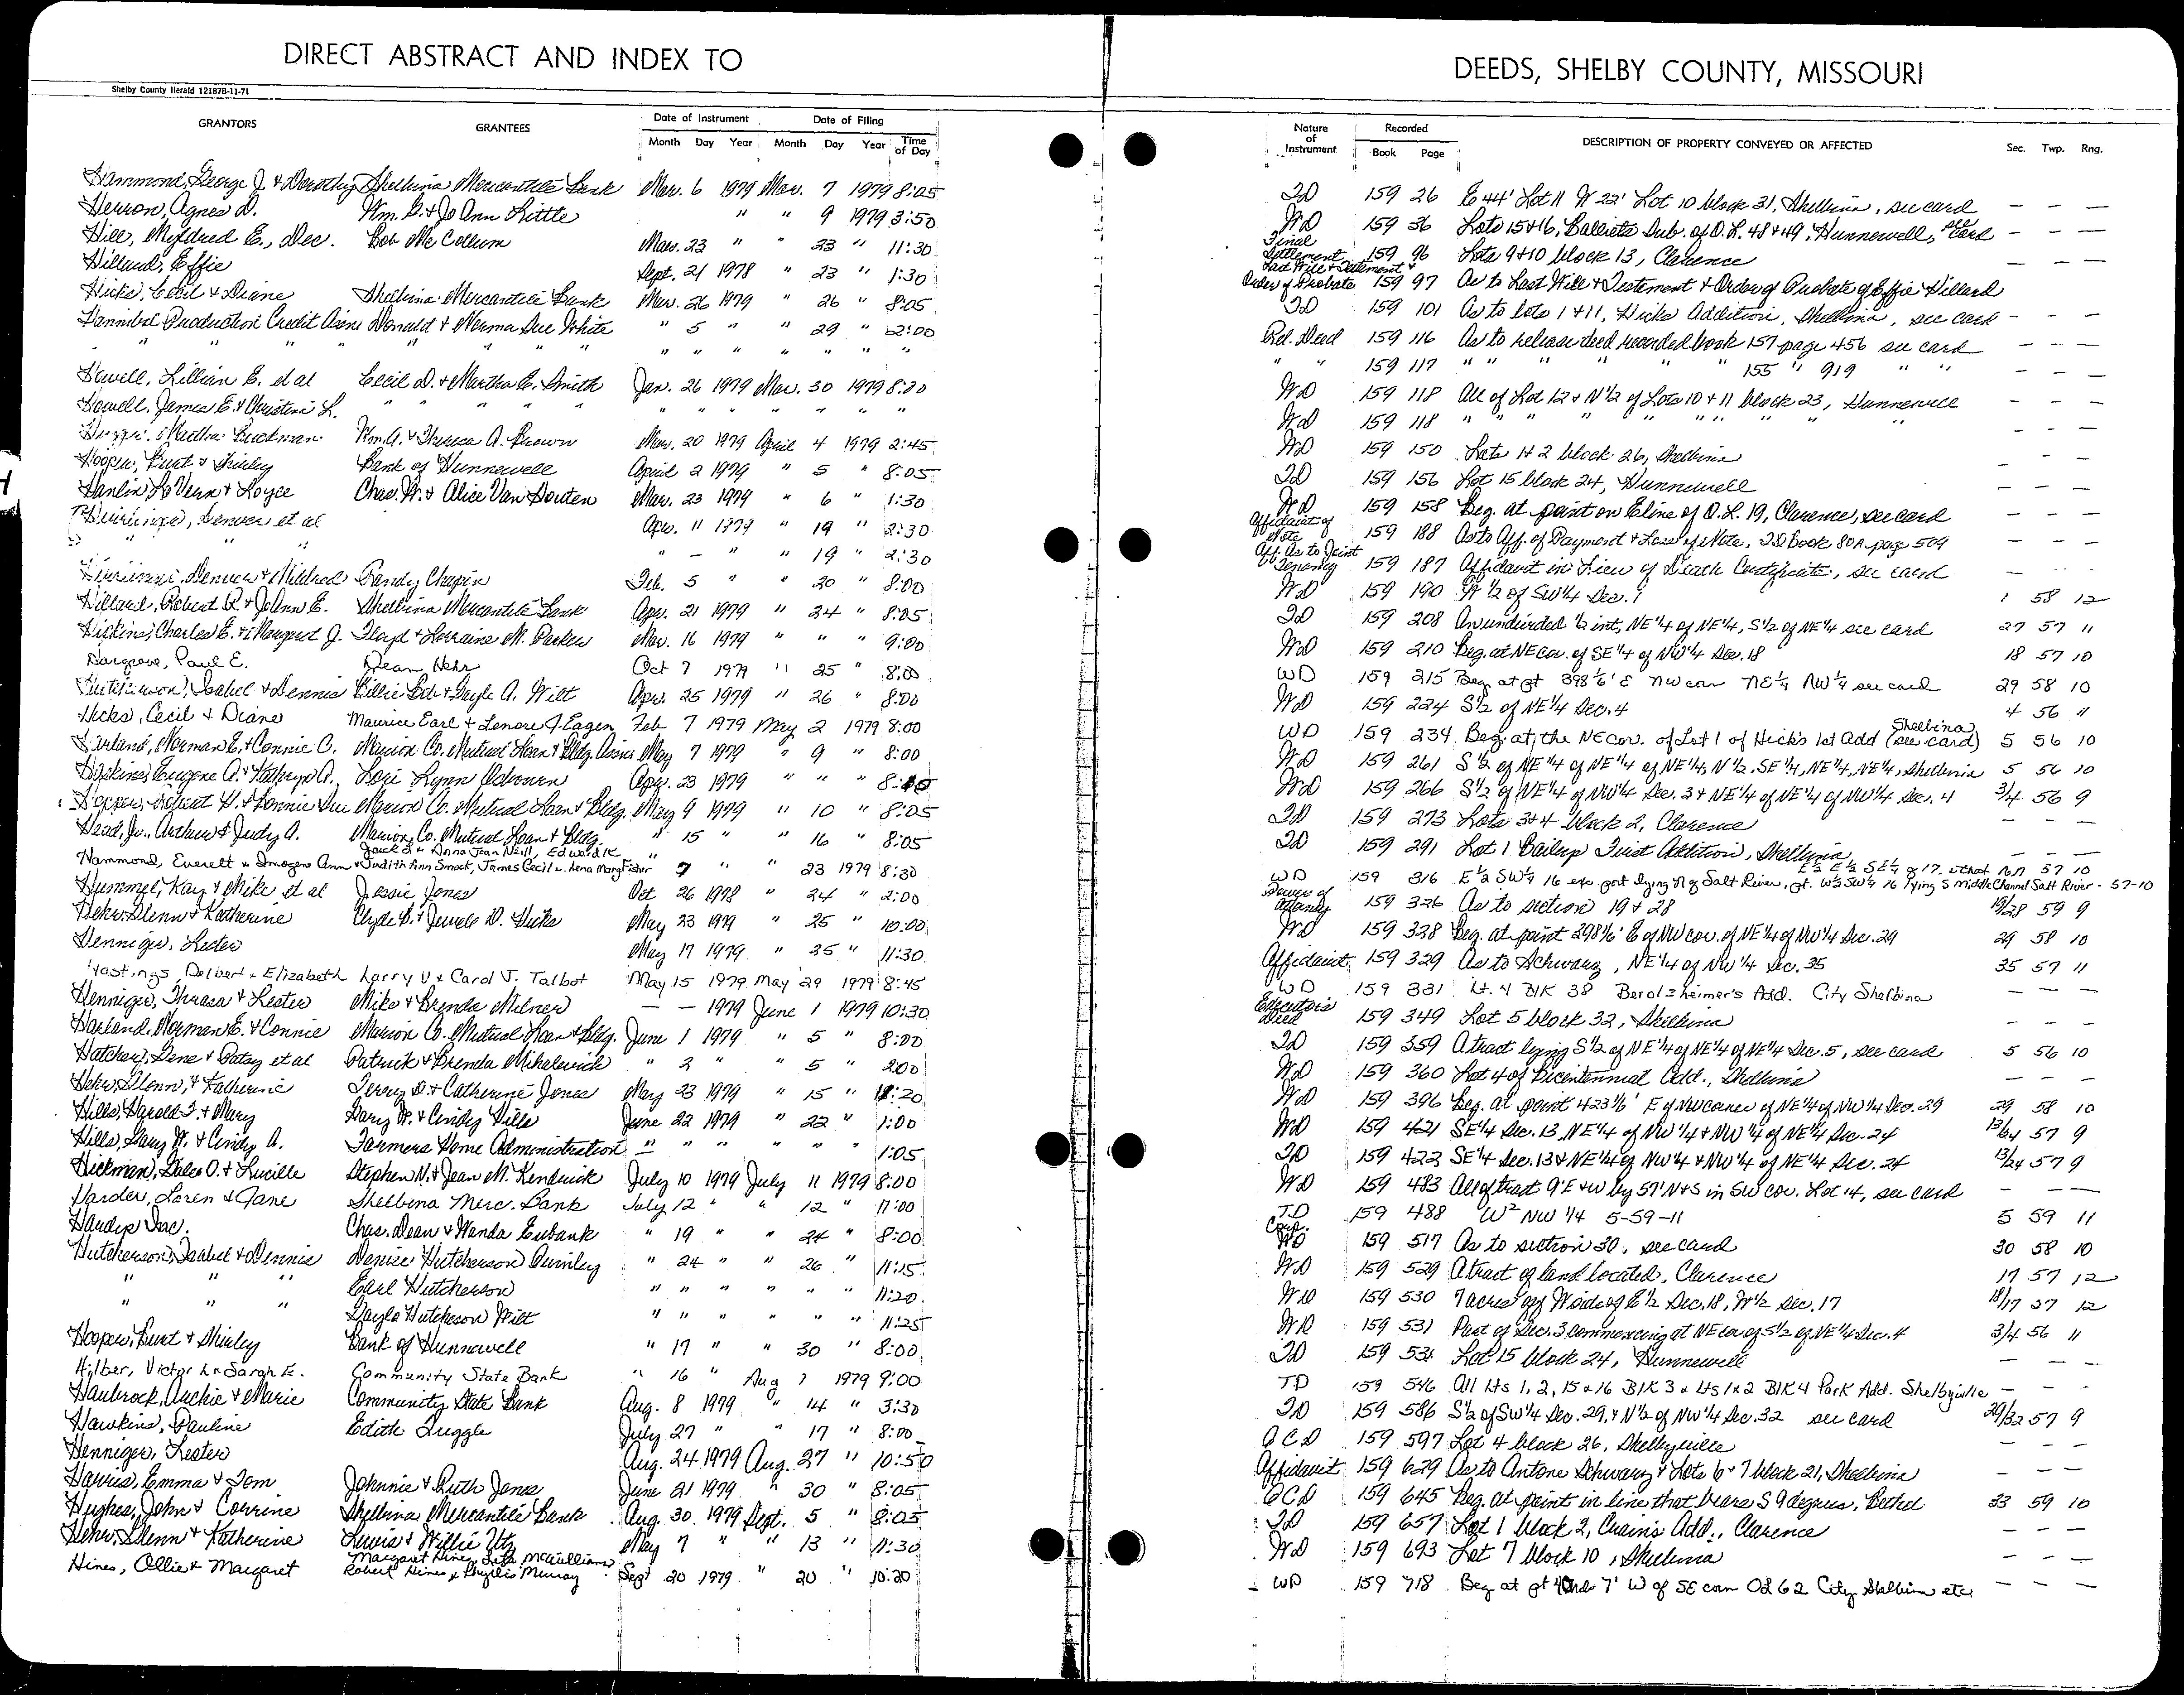 DIRECT ABSTRACT AND INDEX TO
Shelby County Herald 12187B-11-71
GRANTORS GRANTEES Date of Instrument Date of Filing
Month Day Year Month Day Year Time of Day
Hammond, George J. & Dorothy Shelbina Mercantile Bank Mar. 6 1979 Mar. 7 1979 8:05
Herron, Agnes D. Wm. G. & Jo Ann Little " " 9 1979 3:50
Hill, Mildred E., Dec. Bob McCollum Mar. 23 " " 23 " 11:30
Hillard, Effie Sept. 21 1978 " 23 " 1:30
Hicks, Cecil & Diane Shelbina Mercantile Bank Mar. 26 1979 " 26 " 8:05
Hannibal Production Credit Assn Donald & Norma Sue White " 5 " " 29 " 2:00
" " " " " " " " " " " " " "
Howell, Lillian E. et al Cecil D. & Martha E. Smith Jan. 26 1979 Mar. 30 1979 8:20
Howell, James E. & Christina L. " " " " " " " " " "
Buckman Wm. A. & Theresa A. Brown Mar. 20 1979 April 4 1979 2:45
Hooper, Burt & Shirley Bank of Hunnewell April 2 1979 " 5 " 8:05
Hanlin, LaVern & Royce Chas. W. & Alice Van Houten Mar. 23 1979 " 6 " 1:30
Denver et al Apr. 11 1979 " 19 " 2:30
" " " " - " " 19 " 2:30
Denver & Mildred Randy Chapin Feb. 5 " " 20 " 8:00
Hillard, Robert R. & JoAnn E. Shelbina Mercantile Bank Apr. 21 1979 " 24 " 8:05
Charles E. & Margaret J. Floyd & Lorraine M. Parker Mar. 16 1979 " " " 9:00
Hargrove, Paul E. Dean Hehr Oct 7 1979 " 25 " 8:00
Hutcherson, Isabel & Dennis Billie Bob & Gayle A. Wilt Apr. 25 1979 " 26 " 8:00
Hicks, Cecil & Diane Maurice Earl & Lenore J. Eagen Feb 7 1979 May 2 1979 8:00
Harland, Norman E. & Connie C. Marion Co. Mutual Loan & Bldg. Assns May 7 1979 " 9 " 8:00
Haskins, Eugene A. & Kathryn A. Lori Lynn Osbourn Apr. 23 1979 " " "
Hopper, Robert H. & Bonnie Sue Marion Co. Mutual Loan & Bldg. May 9 1979 " 10 " 8:05
Head, Jr., Arthur & Judy A. Marion Co. Mutual Loan & Bldg. " 15 " " 16 " 8:05
Jack D. & Anna Jean Neill, Edward K.
Hammond, Everett & Imogene Ann & Judith Ann Smock, James Cecil & Lena Mary Fisher " 7 " " 23 1979 8:30
Hummel, Kay & Mike et al Jessie Jones Oct 26 1978 " 24 " 2:00
Hehr, Glenn & Katherine Clyde B. & Jewell D. Hicks May 23 1979 " 25 " 10:00
Henniger, Lester May 17 1979 " 25 " 11:30
Hastings, Delbert & Elizabeth Larry V & Carol J. Talbot May 15 1979 May 29 1979 8:45
Henniger, Thrasa & Lester Mike & Brenda Milner - - 1979 June 1 1979 10:30
Harland, Norman E. & Connie Marion Co. Mutual Loan & Bldg. June 1 1979 " 5 " 8:00
Hatcher, Gene & Patsy et al Patrick & Brenda Mihalevich " 2 " " 5 " 2:00
Hehr, Glenn, & Katherine Terry D. & Catherine Jones May 23 1979 " 15 "
Hills, Harold T. & Mary Gary W. & Cindy Hills June 22 1979 " 22 " 1:00
Hills, Gary W. & Cindy A. Farmers Home Administration " " " " " " 1:05
Hickman, Giles O. & Lucille Stephen N. & Jean M. Kendrick July 10 1979 July 11 1979 8:00
Harder, Loren & Jane Shelbina Merc. Bank July 12 " " 12 " 11:00
Handys Inc. Chas. Dean & Wanda Eubank " 19 " " 24 " 8:00
Hutcherson, Isabel & Dennis Denise Hutcherson Quinley " 24 " " 26 " 11:15
" " " Earl Hutcherson " " " " " " 11:20
" " " Gayle Hutcherson Wilt " " " " " " 11:25
Hooper, Burt & Shirley Bank of Hunnewell " 17 " " 30 " 8:00
Hilber, Victor L & Sarah E. Community State Bank " 16 " Aug 7 1979 9:00
Haubrock, Archie & Marie Community State Bank Aug. 8 1979 " 14 " 3:30
Hawkins, Pauline Edith Tuggle July 27 " " 17 " 8:00
Henniger, Lester Aug. 24 1979 Aug. 27 " 10:50
Harris, Emma & Tom Johnnie & Ruth Jones June 21 1979 " 30 " 8:05
Hughes, John & Corrine Shelbina Mercantile Bank Aug. 30. 1979 Sept. 5 " 8:05
Hehr, Glenn & Katherine Lewis & Willie Utz May 7 " " 13 " 11:30
Margaret Hines, Leta McWilliams
Hines, Ollie & Margaret Robert Hines & Phyllis Murray Sept 20 1979. " 20 " 10:20
DEEDS, SHELBY COUNTY, MISSOURI
Nature of Instrument Recorded Book Page DESCRIPTION OF PROPERTY CONVEYED OR AFFECTED Sec. Twp. Rng.
TD 159 26 E 44' Lot 11 W 22' Lot 10 block 31, Shelbina, see card - - -
WD 159 36 Lots 15 & 16, Sub. of O.L. 48 & 49, Hunnewell, see card - - -
Final Settlement 159 96 Lots 9 & 10 block 13, Clarence - - -
Last Will & Testament & Order of Probate 159 97 As to Last Will & Testament & Order of Probate of Effie Hillard
TD 159 101 As to lots 1 & 11, Hicks Addition, Shelbina, see card - - -
Rel. Deed 159 116 As to release deed recorded book 157 page 456 see card - - -
" " 159 117 " " " " " 155 " 919 " " - - -
WD 159 118 All of Lot 12 & N½ of Lots 10 & 11 block 23, Hunnewell - - -
WD 159 118 " " " " " " " " - - -
WD 159 150 Lots 1 & 2 block 26, Shelbina - - -
TD 159 156 Lot 15 block 24, Hunnewell - - -
WD 159 158 Beg. at point on E line of O.L. 19, Clarence, see card - - -
Affidavit of Note 159 188 As to Aff. of Payment & Loss of Note, TD Book 80A page 509 - - -
Aff. As to Joint Tenancy 159 187 Affidavit in Lieu of Death Certificate, see card - - -
WD 159 190 W ½ of SW¼ Sec. 1 1 58 12
TD 159 208 An undivided ½ int, NE¼ of NE¼, S½ of NE¼ see card 27 57 11
WD 159 210 Beg. at NE cor. of SE¼ of NW¼ Sec. 18 18 57 10
WD 159 215 Beg at pt 398⅙' E NW corn NE¼ NW¼ see card 29 58 10
WD 159 224 S½ of NE¼ Sec. 4 4 56 11
WD 159 234 Beg. at the NE cor. of Lot 1 of Hick's 1st Add Shelbina (see card) 5 56 10
WD 159 261 S½ of NE¼ of NE¼ of NE¼, N½, SE¼, NE¼, NE¼, Shelbina 5 56 10
WD 159 266 S½ of NE¼ of NW¼ Sec. 3 & NE¼ of NE¼ of NW¼ Sec. 4 3/4 56 9
TD 159 273 Lots 3 & 4 block 2, Clarence - - -
TD 159 291 Lot 1 Bailup First Addition, Shelbina - - -
E½ E½ SE¼ of 17. that 57 10
WD 159 316 E½ SW¼ 16 exc. part lying N of Salt River, pt. W½ SW¼ 16 lying S middle Channel Salt River - 57-10
Power of Attorney 159 326 As to section 19 & 28 19/28 59 9
WD 159 328 Beg. at point 298⅙' E of NW cor. of NE¼ of NW¼ Sec. 29 29 58 10
Affidavit 159 329 As to Schwarz, NE¼ of NW¼ Sec. 35 35 57 11
WD 159 331 Lt. 4 Blk 38 Berolzheimer's Add. City Shelbina - - -
Executor's Deed 159 349 Lot 5 block 32, Shelbina - - -
TD 159 359 A tract lying S½ of NE¼ of NE¼ of NE¼ Sec. 5, see card 5 56 10
WD 159 360 Lot 4 of Bicentennial Add., Shelbina - - -
WD 159 396 Beg. at point 423⅙' E of NW corner of NE¼ of NW¼ Sec. 29 29 58 10
WD 159 421 SE¼ Sec. 13, NE¼ of NW¼ & NW¼ of NE¼ Sec. 24 13/24 57 9
TD 159 422 SE¼ Sec. 13 & NE¼ of NW¼ & NW¼ of NE¼ Sec. 24 13/24 57 9
WD 159 483 All of tract 9'E & W by 57' N & S in SW cor. Lot 14, see card - - -
TD 159 488 W² NW 1/4 5-59-11 5 59 11
Corp. WD 159 517 As to section 30, see card 30 58 10
WD 159 529 A tract of land located, Clarence 17 57 12
WD 159 530 7 acres off W side of E½ Sec. 18, W½ Sec. 17 18/17 57 12
WD 159 531 Part of Sec. 3 commencing at NE cor of S½ of NE¼ Sec. 4 3/4 56 11
TD 159 531 Lot 15 block 24, Hunnewell - - -
TD 159 546 All Lts 1, 2, 15 & 16 Blk 3 & Lts 1 & 2 Blk 4 Park Add. Shelbyville - - -
TD 159 586 S½ of SW¼ Sec. 29, & N½ of NW¼ Sec. 32 see card 29/32 57 9
QCD 159 597 Lot 4 block 26, Shelbyville - - -
Affidavit 159 629 As to Antone Schwarz & Lots 6 & 7 block 21, Shelbina - - -
QCD 159 645 Beg. at point in line that bears S 9 degrees, Bethel 33 59 10
TD 159 657 Lot 1 block 2, Crain's Add., Clarence - - -
WD 159 693 Lot 7 block 10, Shelbina - - -
WD 159 718 Beg at pt 7' W of SE corn OL 62 City Shelbina etc. - - -